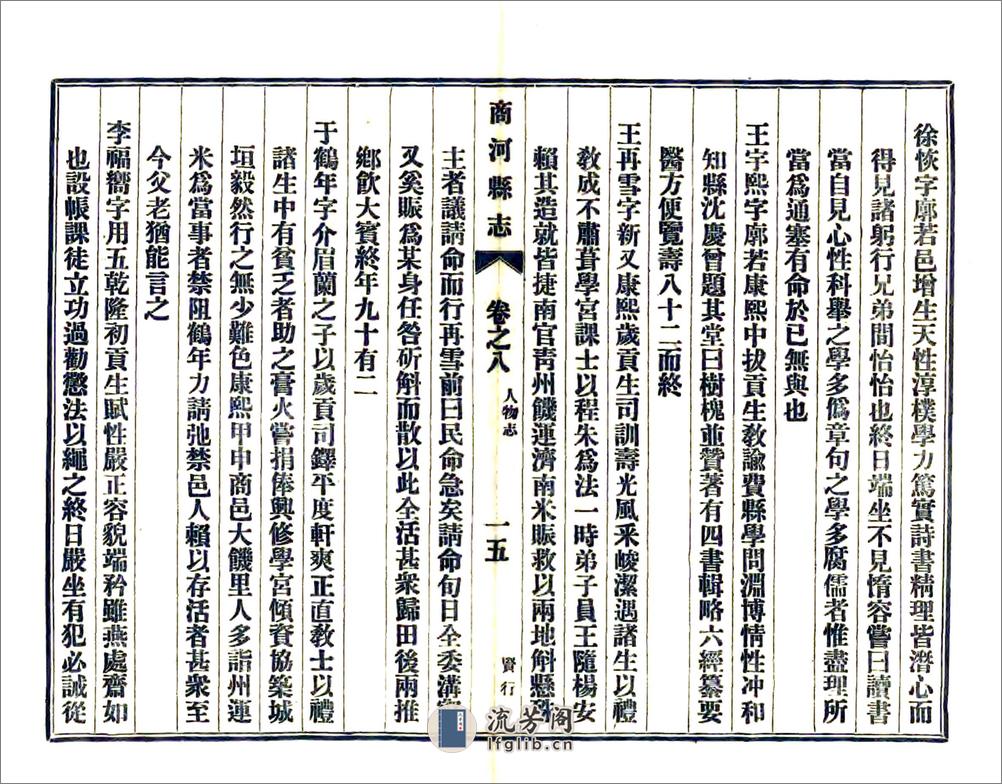 徐恢字廓若邑增生天性淳樸學力篤實詩書精理皆濳心而
得見諸躬行兄弟間怡怡也終日端坐不見惰容嘗曰讀書
當自見心性科舉之學多僞章句之學多腐儒者惟盡理所
當爲通塞有命於已無與也
王字熙字廓若康熙中拔貢生教諭費縣學問淵博情性冲和
知縣沈慶曾題其堂曰樹槐並贊著有四書輯略六經纂要
醫方便覽壽八十二而終
王再雪字新又康熙歲貢生司訓壽光風采峻潔遇諸生以禮
敎成不肅葺學宮課士以程朱爲法一時弟子員王隨楊安
賴其造就皆捷南宮靑州饑運濟南米賑救以兩地斛懸殊
商河縣志
卷之八
人物志
一五
賢行
主者議請命而行再雪前曰民命急矣請命旬日全委溝
又奚賑爲某身任咎斫斛而散以此全活甚衆歸田後兩推
鄕飮大賓終年九十有二
于鶴年字介眉蘭之子以歲貢司鐸平度軒爽正直敎士以禮
諸生中有貧乏者助之膏火嘗捐俸興修學宮傾資協築城
垣毅然行之無少難色康熙甲申商邑大饑里人多詣州運
米爲當事者禁阻鶴年力請弛禁邑人賴以存活者甚衆至
今父老猶能言之
李福嚮字用五乾隆初貢生賦性嚴正容貌端矜雖燕處齋如
也設帳課徒立功過勸懲法以繩之終日嚴坐有犯必誡從
流芳閣
lfglib.cn